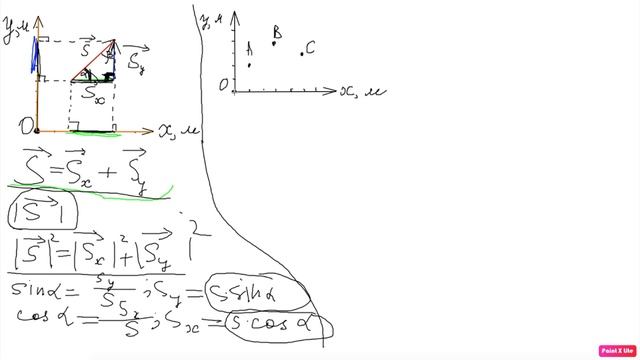 y, м
S⃗
β
S⃗y
α
S⃗x
O
x, м
S⃗ = S⃗x + S⃗y
|S⃗|
|S⃗|² = |S⃗x|² + |S⃗y|²
sinα = Sy/S ; Sy = S·sinα
cosα = Sx/S ; Sx = S·cosα
y, м
A
B
C
O
x, м
Paint X Lite